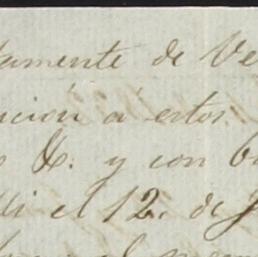 tamente de Ve
ución a estos
s &. y con b
lli el 12. de J